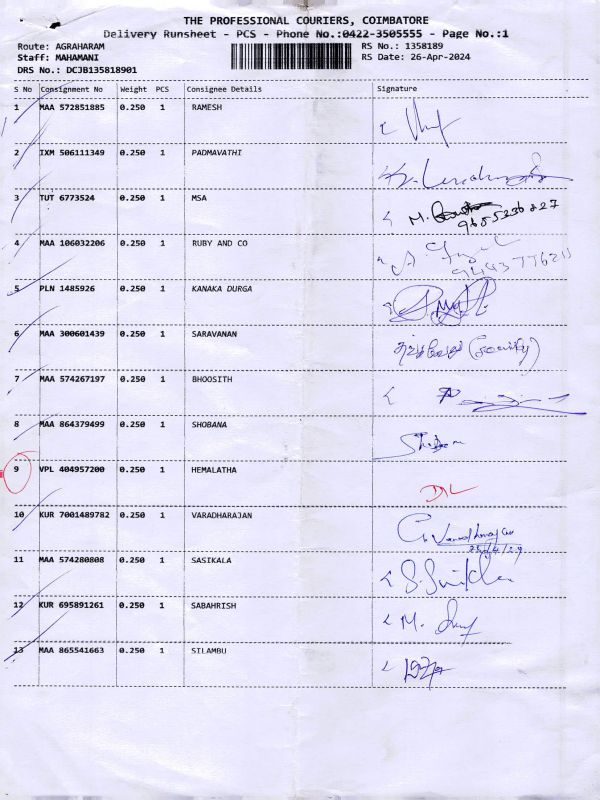 THE PROFESSIONAL COURIERS, COIMBATORE
Delivery Runsheet - PCS - Phone No.:0422-3505555 - Page No.:1
Route: AGRAHARAM RS No.: 1358189
Staff: MAHAMANI RS Date: 26-Apr-2024
DRS No.: DCJB135818901
S No Consignment No Weight PCS Consignee Details Signature
1 MAA 572851885 0.250 1 RAMESH
2 IXM 506111349 0.250 1 PADMAVATHI
3 TUT 6773524 0.250 1 MSA M. 9655236227
4 MAA 106032206 0.250 1 RUBY AND CO
5 PLN 1485926 0.250 1 KANAKA DURGA
6 MAA 300601439 0.250 1 SARAVANAN
7 MAA 574267197 0.250 1 BHOOSITH
8 MAA 864379499 0.250 1 SHOBANA
9 VPL 404957200 0.250 1 HEMALATHA
10 KUR 7001489782 0.250 1 VARADHARAJAN
11 MAA 574280808 0.250 1 SASIKALA
12 KUR 695891261 0.250 1 SABAHRISH M.
13 MAA 865541663 0.250 1 SILAMBU